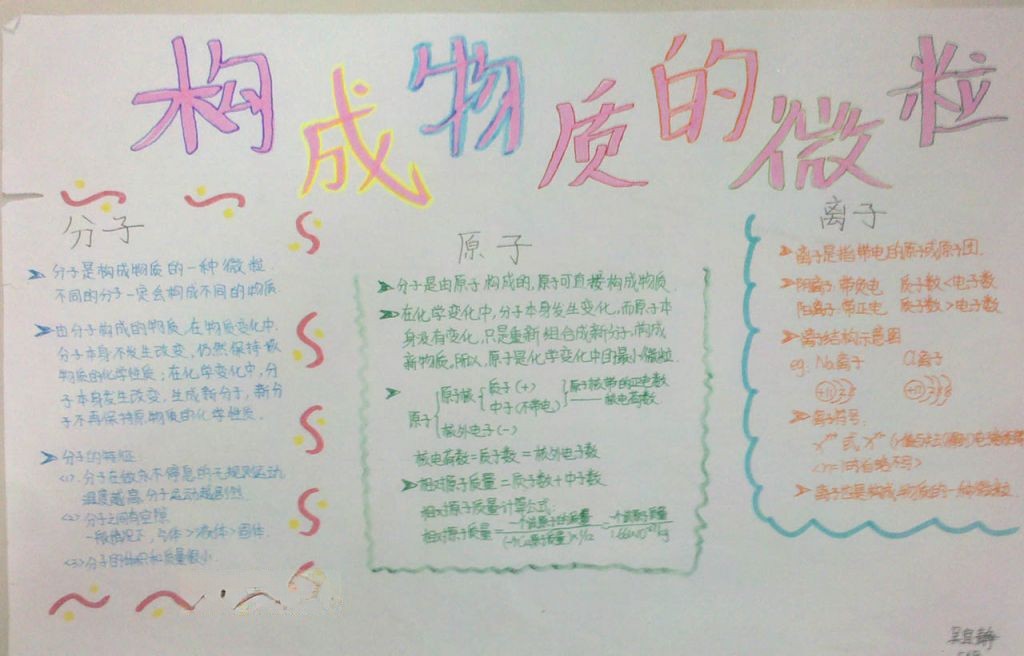 构成物质的微粒
分子
➤分子是构成物质的一种微粒.
不同的分子一定会构成不同的物质.
➤由分子构成的物质,在物质变化中,
分子本身不发生改变,仍然保持
物质的化学性质;在化学变化中,分
子本身发生改变,生成新分子,新分
子不再保持原物质的化学性质.
➤分子的特征:
<1>.分子在做永不停息的无规则运动
温度越高,分子运动越剧烈.
<2>分子之间有空隙
一般情况下,气体>液体>固体.
<3>分子的体积和质量很小.
原子
➤分子是由原子构成的,原子可直接构成物质.
➤在化学变化中,分子本身发生变化,而原子本
身没有变化,只是重新组合成新分子,构成
新物质,所以,原子是化学变化中的最小微粒.
➤原子 原子核 质子(+) 中子(不带电) 原子核带的正电数 核电荷数
核外电子(-)
核电荷数=质子数=核外电子数
➤相对原子质量=质子数+中子数
相对原子质量计算公式:
相对原子质量=
离子
➤离子是指带电的原子或原子团.
➤阴离子:带负电 质子数<电子数
阳离子:带正电 质子数>电子数
➤离子结构示意图
eg: Na离子 Cl离子
➤离子符号:
➤离子也是构成物质的一种微粒.